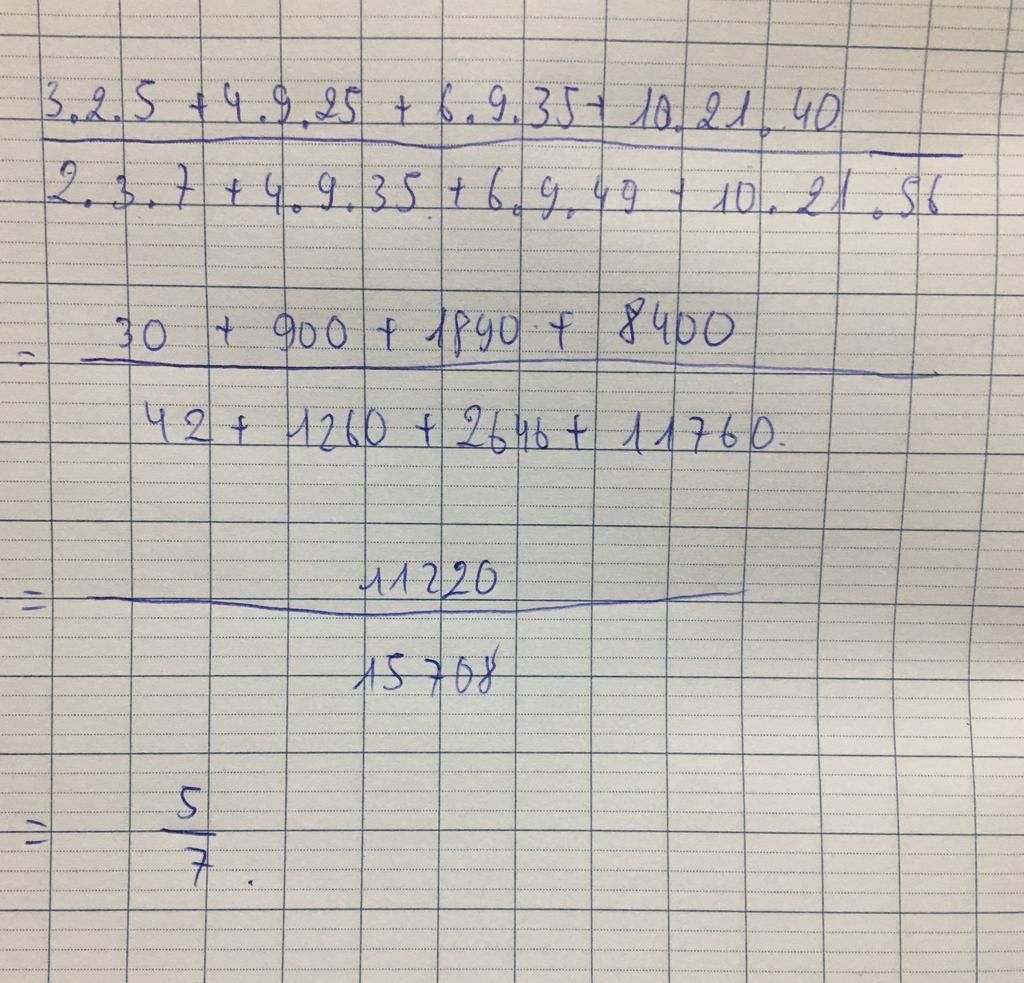 3.2.5 + 4.9.25 + 6.9.35 + 10.21.40
2.3.7 + 4.9.35 + 6.9.49 + 10.21.56
= 30 + 900 + 1890 + 8400
42 + 1260 + 2646 + 11760.
= 11220
15708
= 5
7.